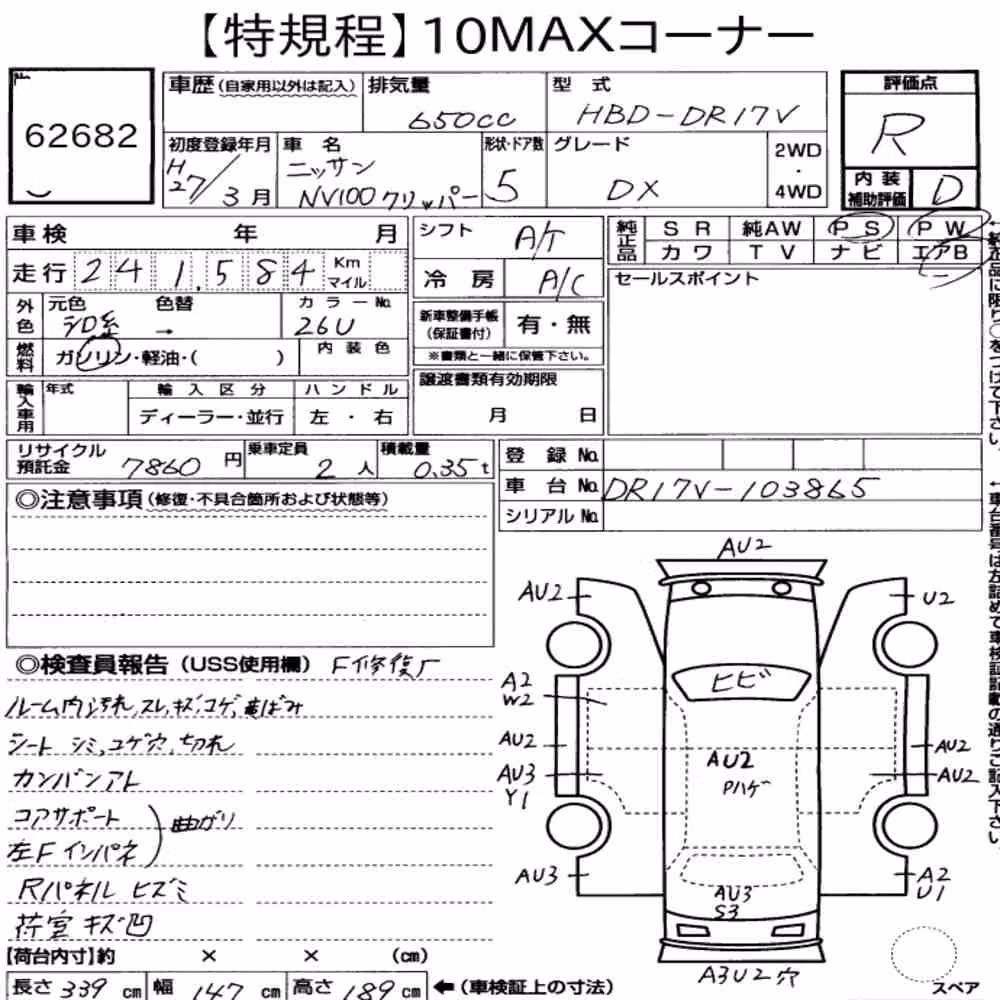 【特規程】10MAXコーナー
62682
車歴(自家用以外は記入) 排気量 650cc 型式 HBD-DR17V 評価点 R
初度登録年月 H27/3月 車名 ニッサン NV100クリッパー 形状・ドア数 5 グレード DX 2WD・4WD 内装補助評価 D
車検 年 月 シフト A/T 純正品 SR 純AW PS PW
カワ TV ナビ エアB
走行 241,584 Km マイル 冷房 A/C セールスポイント
外色 元色 シロ系 色替 → カラーNo. 26U 新車整備手帳(保証書付) 有・無
※書類と一緒に保管下さい。
燃料 ガソリン・軽油・( ) 内装色
譲渡書類有効期限 月 日
輸入車用 年式 輸入区分 ハンドル
ディーラー・並行 左・右
リサイクル預託金 7860円 乗車定員 2人 積載量 0.35t 登録No.
車台No. DR17V-103865
シリアルNo.
◎注意事項(修復・不具合箇所および状態等)
◎検査員報告(USS使用欄) F修復有
ルーム内汚れ,スレ,キズ,コゲ,黄ばみ
シート シミ,コゲ穴,切れ
カンバンアト
コアサポート
左Fインパネ
曲がり
Rパネル ヒズミ
荷室 キズ凹
【荷台内寸】約 × × (cm)
長さ 339 cm 幅 147 cm 高さ 189 cm ←(車検証上の寸法)
AU2
AU2 U2
ヒビ
A2
W2
AU2 AU2
AU3 AU2
Y1
AU2
Pハゲ
AU3 A2
U1
AU3
S3
A3U2穴
スペア
←純正品に限り○をつけて下さい。
←車台番号は左詰めで車検証記載の通りご記入下さい。